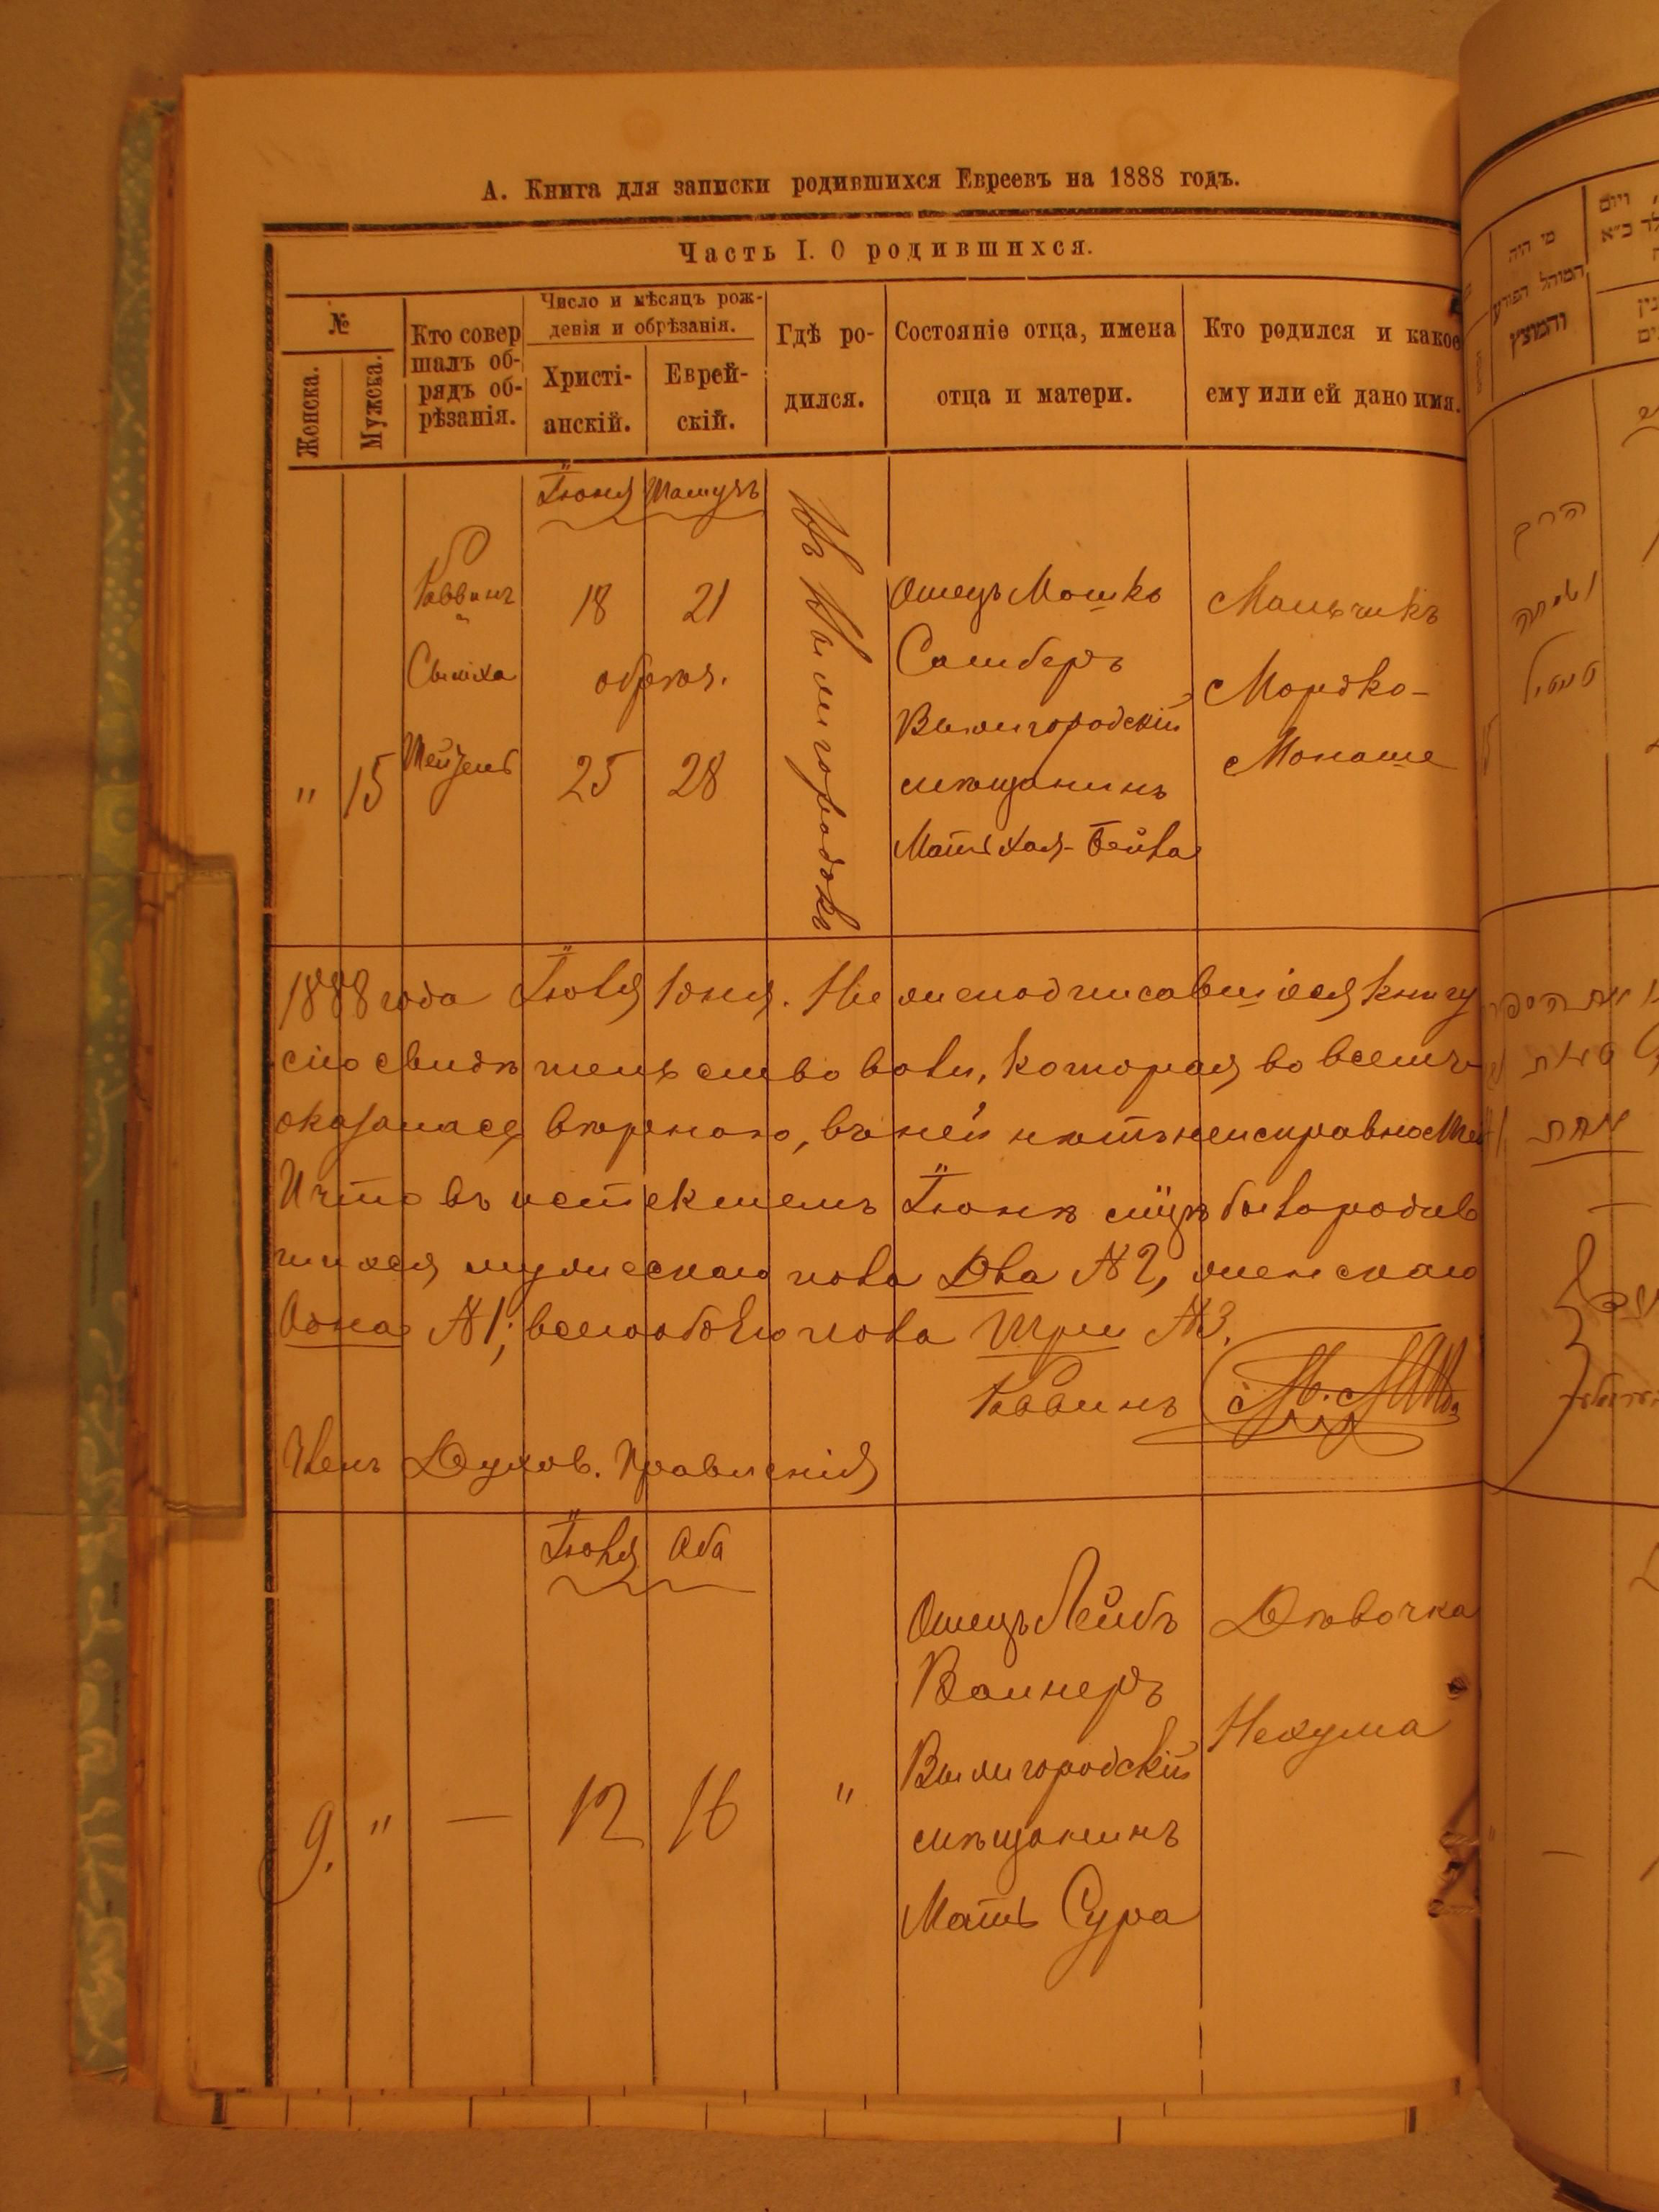 А. Книга для записки родившихся Евреевъ на 1888 годъ.
Часть I. О родившихся.
№
Женска.
Мужска.
Кто совер
шалъ об-
рядъ об-
рѣзанія.
Число и мѣсяцъ рож-
денія и обрѣзанія.
Христі-
анскій.
Еврей-
скій.
Гдѣ ро-
дился.
Состояніе отца, имена
отца и матери.
Кто родился и какое
ему или ей дано имя.
Іюня
"
15
Раввинъ
Сымха
18
21
обрѣз.
25
28
Отецъ Мошко
Вышгородскій
мѣщанинъ
Мать Хая-Бейла
Мальчикъ
Мордко-
Монаше
1888 года Іюля 1 дня. Ниже подписавшіеся книгу
сію свидѣтельствовали, которая во всемъ
оказалася вѣрною, въ ней нѣтъ неисправностей
И что въ истекшемъ Іюнѣ м-цѣ было родив
шихся мужескаго пола Два № 2, женскаго
Одна № 1; всего обоего пола Три № 3.
Раввинъ
Член Духов. Правленія
Іюля
Аба
9.
"
—
12
16
"
Отецъ Лейбъ
Вайнеръ
Вышгородскій
мѣщанинъ
Мать Сура
Дѣвочка
Нехума
מי היה
המוהל הפורע
והמוצץ